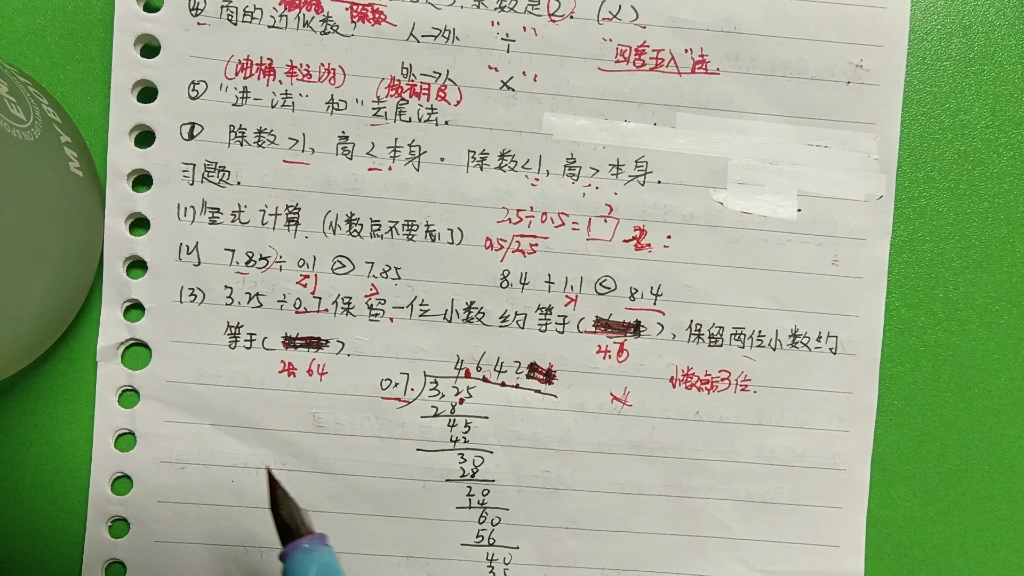 数是②. (×)
④ 商的近似数: 除数 人→外 "÷" "四舍五入"法.
(油桶、车运物) (做布用皮) 外→人 "×"
⑤ "进一法" 和 "去尾法.
① 除数>1, 商<本身. 除数<1, 商>本身.
习题.
(1) 竖式计算. (小数点不要看了) 2.5÷0.5=
0.5/2.5
(2) 7.85÷0.1 > 7.85 8.4÷1.1 < 8.4
(3) 3.25÷0.7保留一位小数约等于( ), 保留两位小数约
4.6
等于( ).
4.64
小数点3位.
4.642
0.7)3.25
28
45
42
30
28
20
14
60
56
40
35